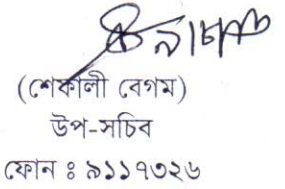 (শেফালী বেগম)
উপ-সচিব
ফোন ঃ ৯১১৭৩২৬